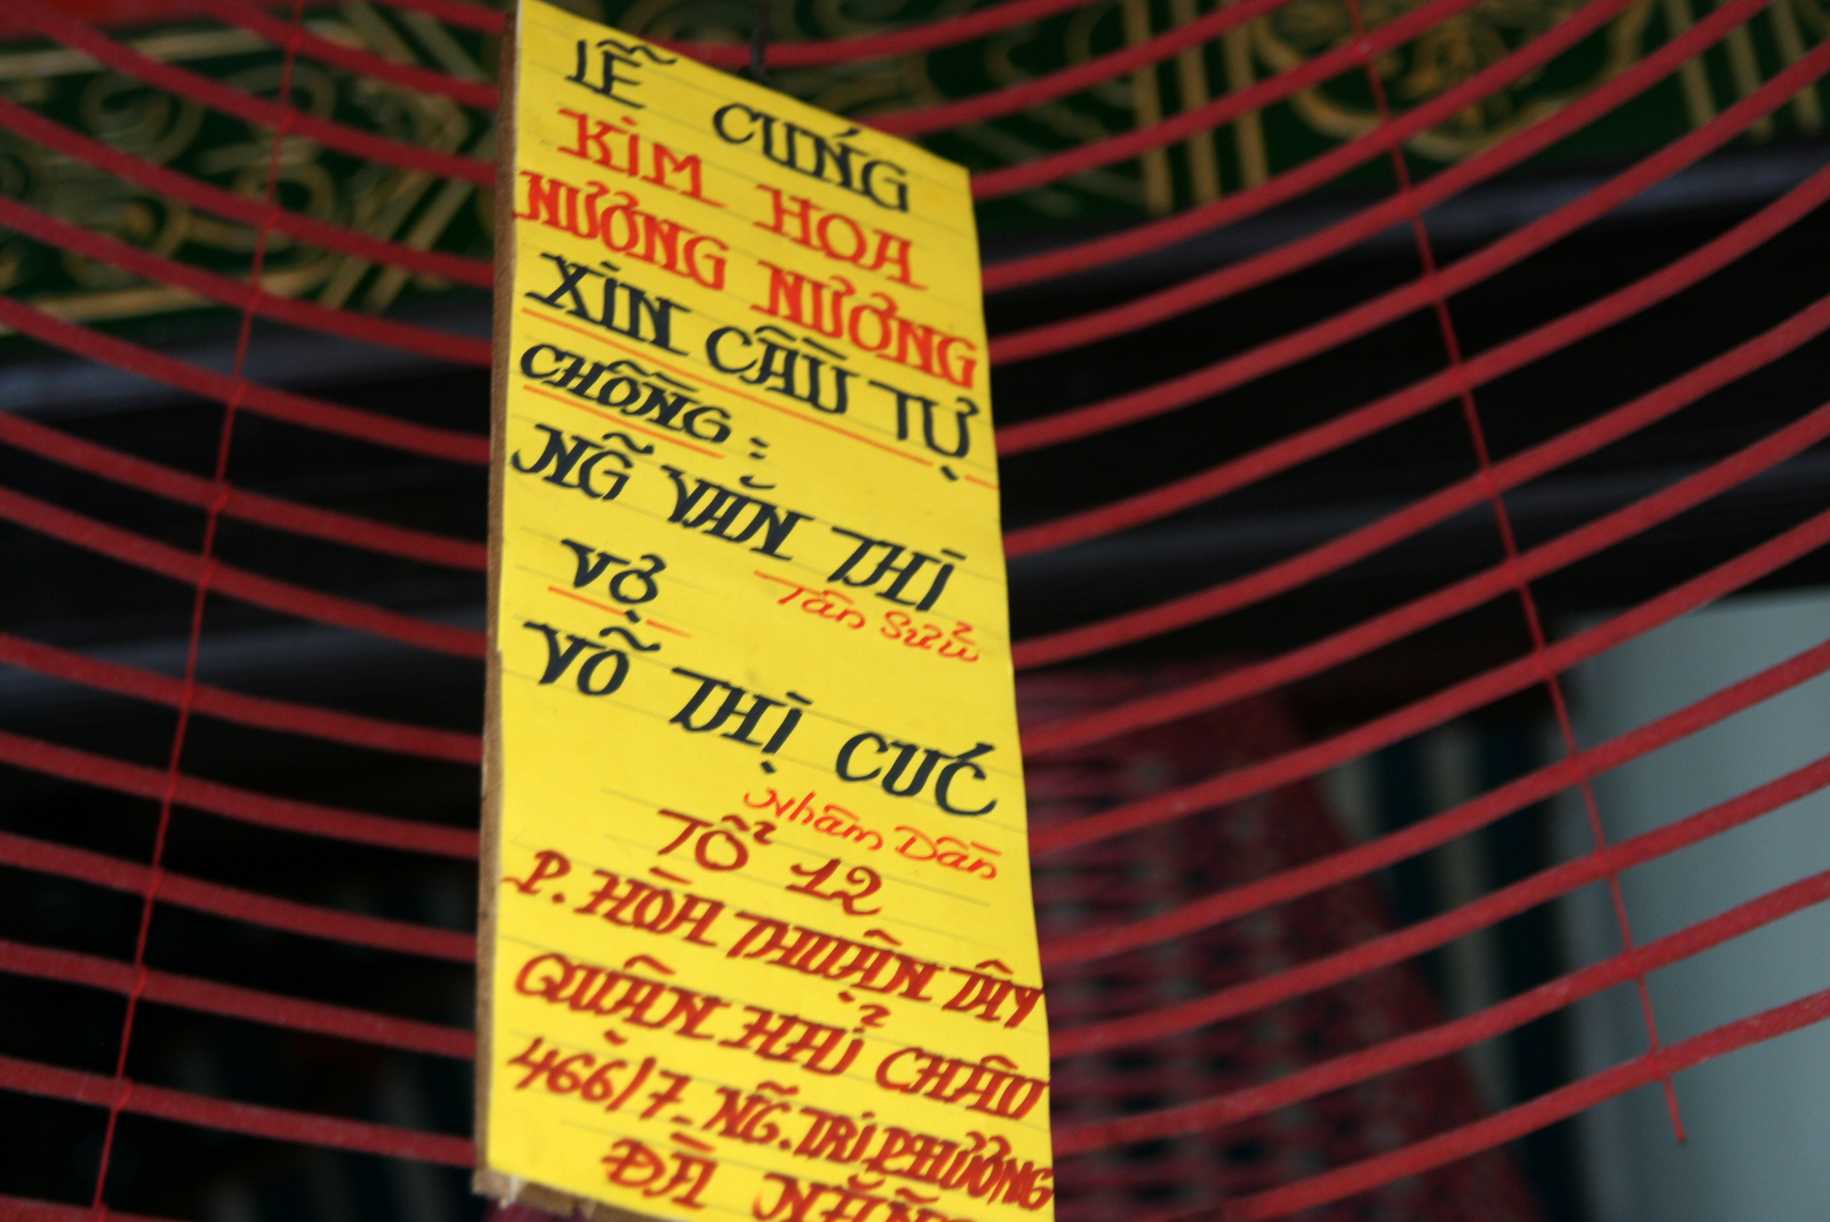 LỄ CÚNG
KIM HOA
NƯƠNG NƯƠNG
XIN CẦU TỰ
CHỒNG:
NG̃ VĂN THÌ
Tân Sửu
VỢ
VÕ THỊ CÚC
Nhâm Dần
TỔ 12
P. HÒA THUẬN TÂY
QUẬN HẢI CHÂU
466/7 NG̃. TRI PHƯƠNG
ĐÀ NẴNG